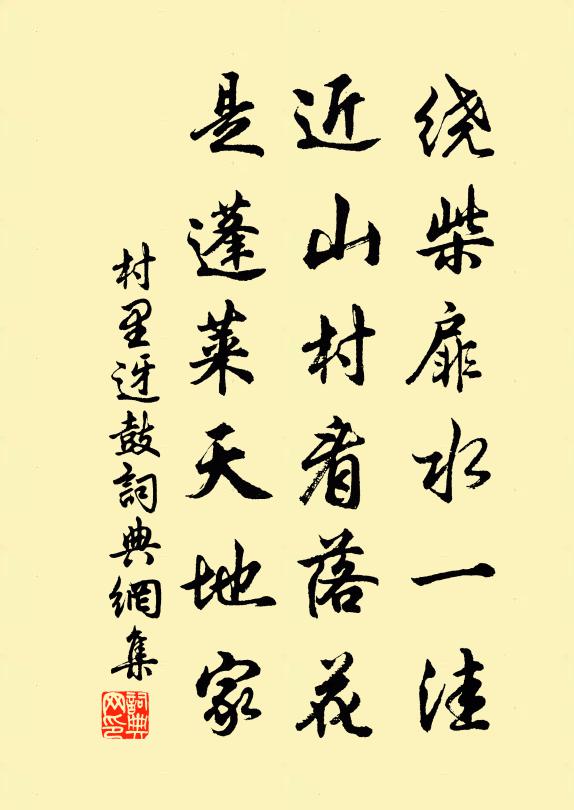 绕柴扉水一洼
近山村看落花
是蓬莱天地家
村里迓鼓詞典網集
詞典網印